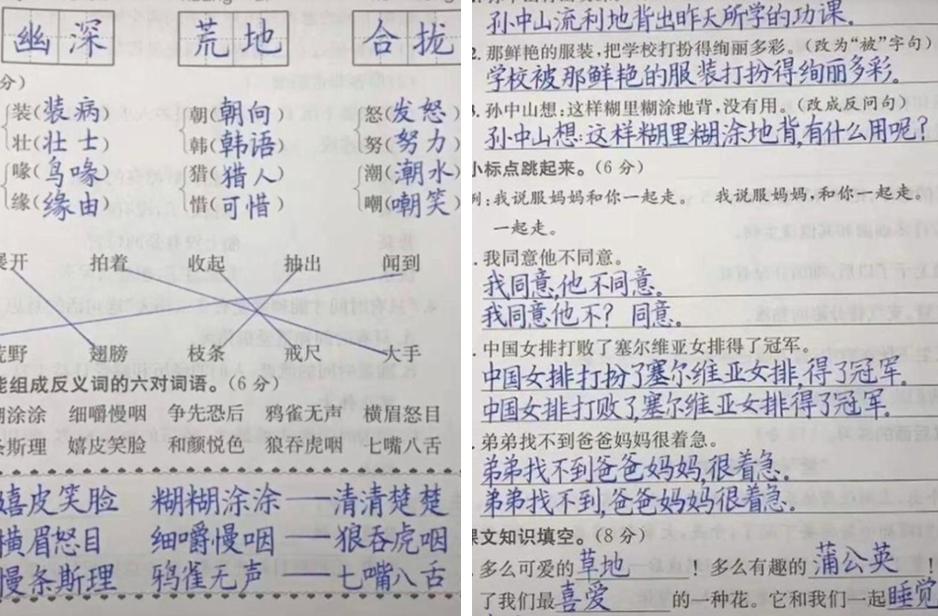 幽深 荒地 合拢
分）
装（装病） 朝（朝向） 怒（发怒）
壮（壮士） 韩（韩语） 努（努力）
喙（鸟喙） 猎（猎人） 潮（潮水）
缘（缘由） 惜（可惜） 嘲（嘲笑）
开 拍着 收起 抽出 闻到
荒野 翅膀 枝条 戒尺 大手
能组成反义词的六对词语。（6 分）
糊涂涂 细嚼慢咽 争先恐后 鸦雀无声 横眉怒目
条斯理 嬉皮笑脸 和颜悦色 狼吞虎咽 七嘴八舌
嬉皮笑脸 糊糊涂涂——清清楚楚
横眉怒目 细嚼慢咽——狼吞虎咽
慢条斯理 鸦雀无声——七嘴八舌
孙中山流利地背出昨天所学的功课。
2. 那鲜艳的服装，把学校打扮得绚丽多彩。（改为“被”字句）
学校被那鲜艳的服装打扮得绚丽多彩。
3. 孙中山想：这样糊里糊涂地背，没有用。（改成反问句）
孙中山想：这样糊里糊涂地背，有什么用呢？
小标点跳起来。（6 分）
例：我说服妈妈和你一起走。 我说服妈妈，和你一起走。
一起走。
我同意他不同意。
我同意，他不同意。
我同意他不？同意。
中国女排打败了塞尔维亚女排得了冠军。
中国女排打扮了塞尔维亚女排，得了冠军。
中国女排打败了，塞尔维亚女排得了冠军。
弟弟找不到爸爸妈妈很着急。
弟弟找不到爸爸妈妈，很着急。
弟弟找不到，爸爸妈妈很着急。
课文知识填空。（8 分）
多么可爱的草地！多么有趣的蒲公英！
了我们最喜爱的一种花。它和我们一起睡觉